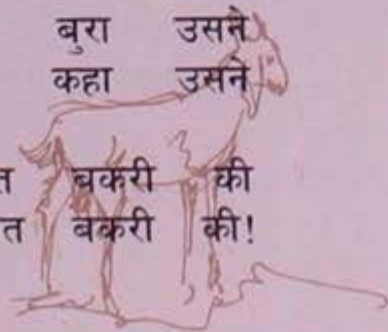 बुरा उसने
कहा उसने
बकरी की
बकरी की!